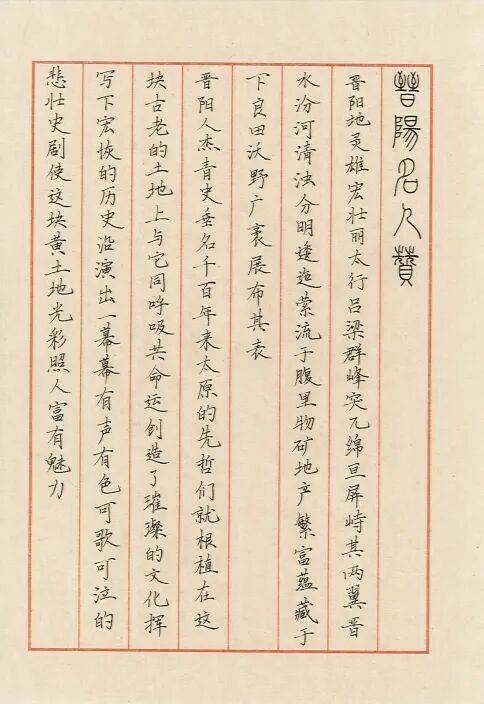 晋陽名人贊
晋阳地灵雄宏壮丽太行吕梁群峰突兀绵亘屏峙其两翼晋
水汾河清浊分明逶迤萦流于腹里物矿地产繁富蕴藏于
下良田沃野广袤展布其表
晋阳人杰青史垂名千百年来太原的先哲们就根植在这
块古老的土地上与它同呼吸共命运创造了璀璨的文化挥
写下宏恢的历史沿演出一幕幕有声有色可歌可泣的
悲壮史剧使这块黄土地光彩照人富有魅力